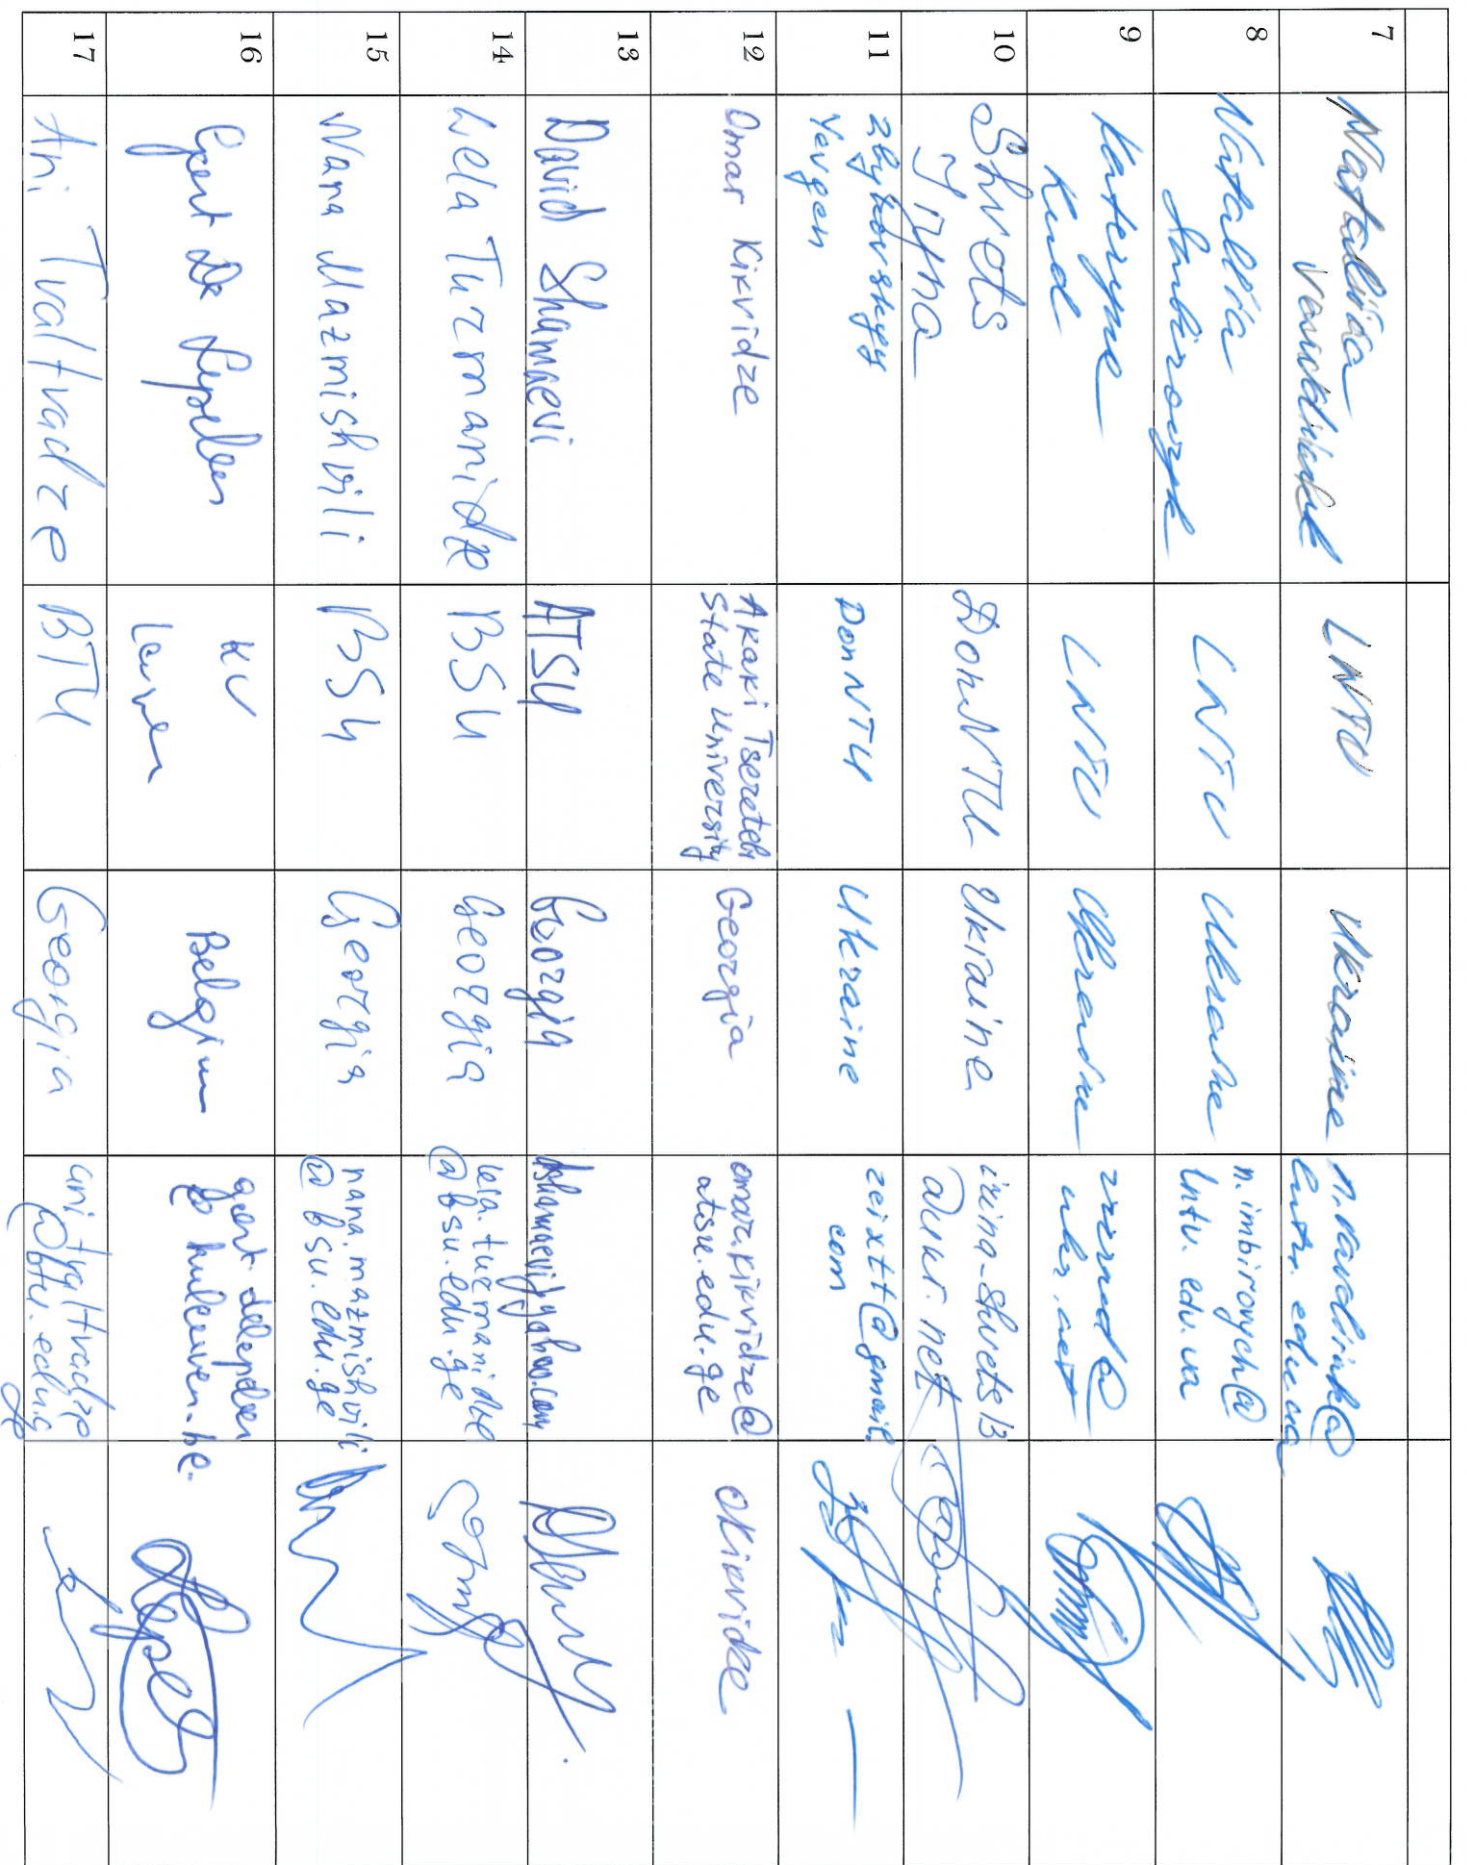 7
Nataliia
LNTU
Ukraine
8
Nataliia
LNTU
Ukraine
n.imbirovych@
lntu.edu.ua
9
Kateryna
Kud
LNTU
Ukraine
@
ukr.net
10
Shvets
Iryna
DonNTU
Ukraine
irina-shvets13
@ukr.net
11
Zbykovskyy
Yevgen
DonNTU
Ukraine
zeixtt@gmail.
com
12
Omar Kikvidze
Akaki Tsereteli
State University
Georgia
omar.kikvidze@
atsu.edu.ge
okikvidze
13
David Shamaevi
ATSU
Georgia
14
Lela Turmanidze
BSU
Georgia
lela.turmanidze
@bsu.edu.ge
15
Nana Mazmishvili
BSU
Georgia
nana.mazmishvili
@bsu.edu.ge
16
Geert De Lepeleer
KU
Leuven
Belgium
geert.delepeleer
@kuleuven.be.
17
Ani Tvaltvadze
BTU
Georgia
ani.tvaltvadze
@btu.edu.ge